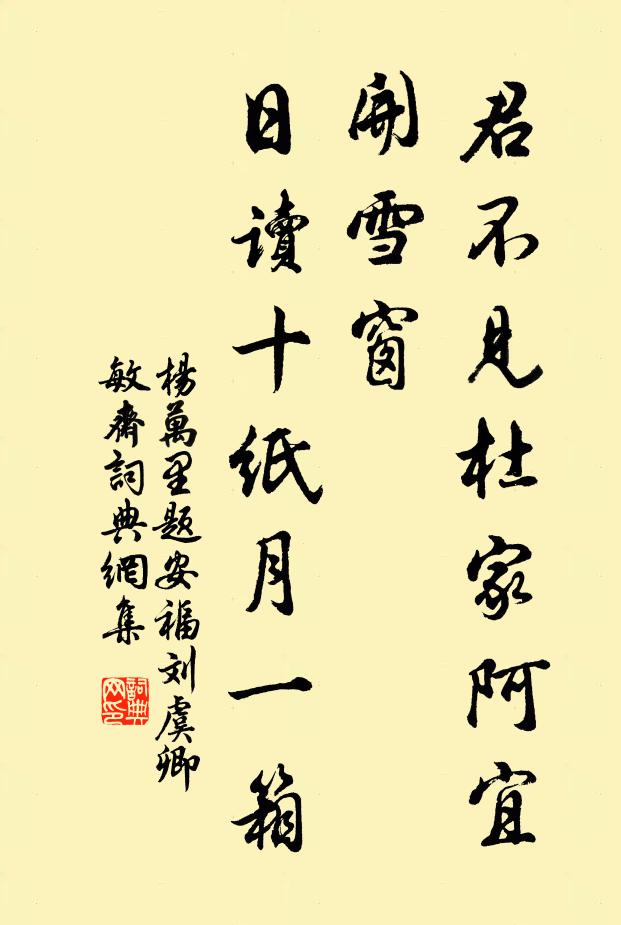 君不見杜家阿宜
開雪窗
日讀十紙月一箱
楊萬里題安福刘虞卿
敏齋詞典網集
詞典
网印